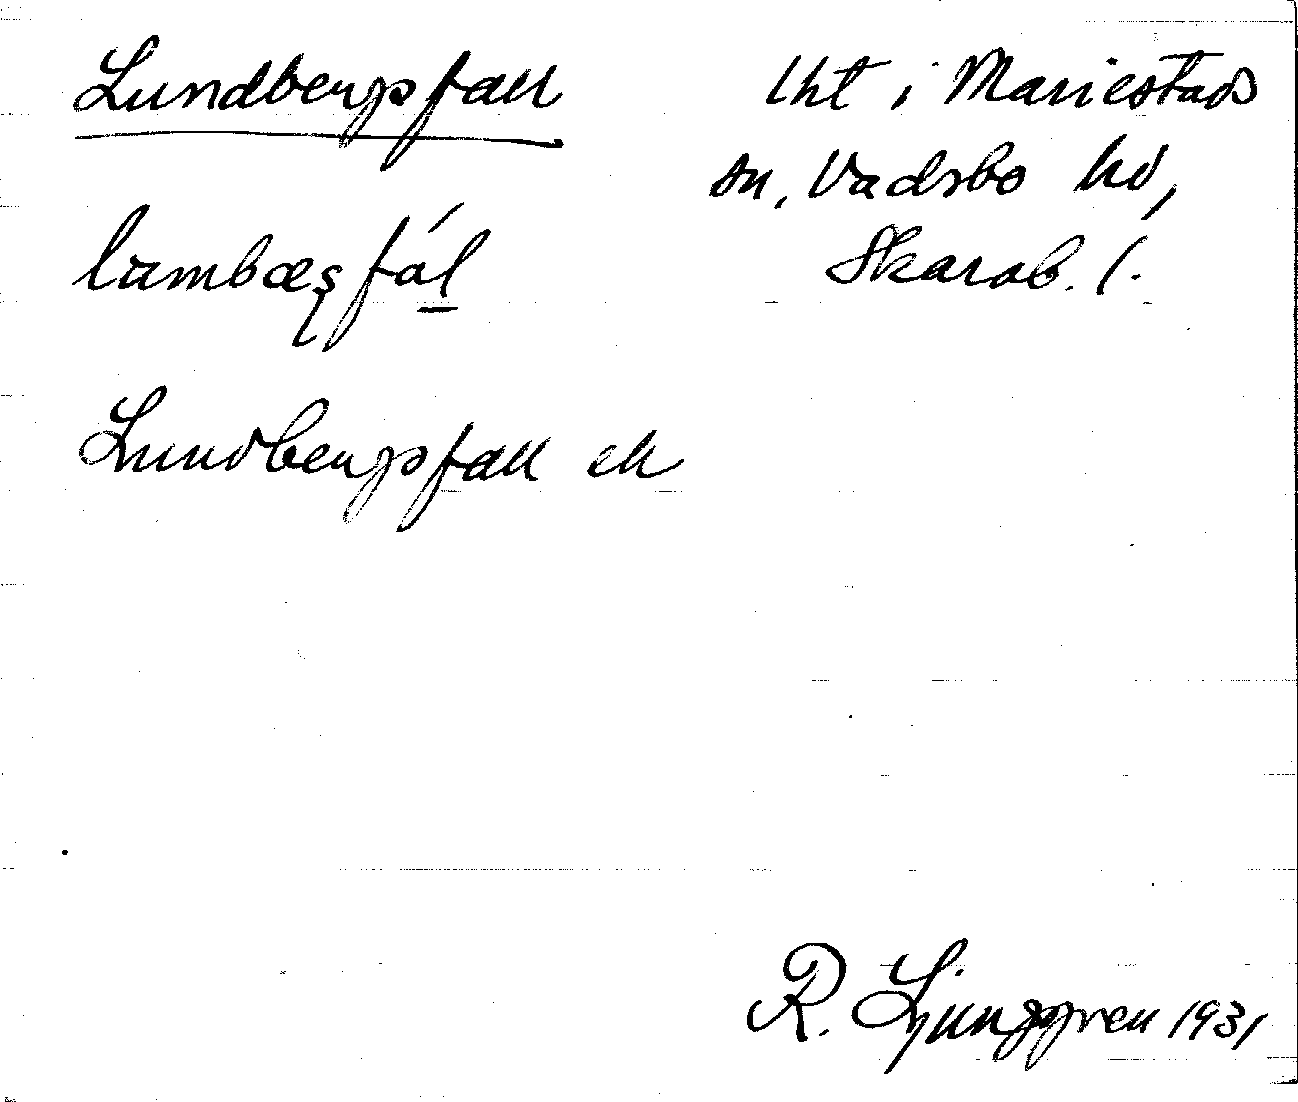 Lundbergsfall
lht i Mariestads
sn, Vadsbo hd,
Skarab. l.
Lundbergsfall ek
R. Ljunggren 1931